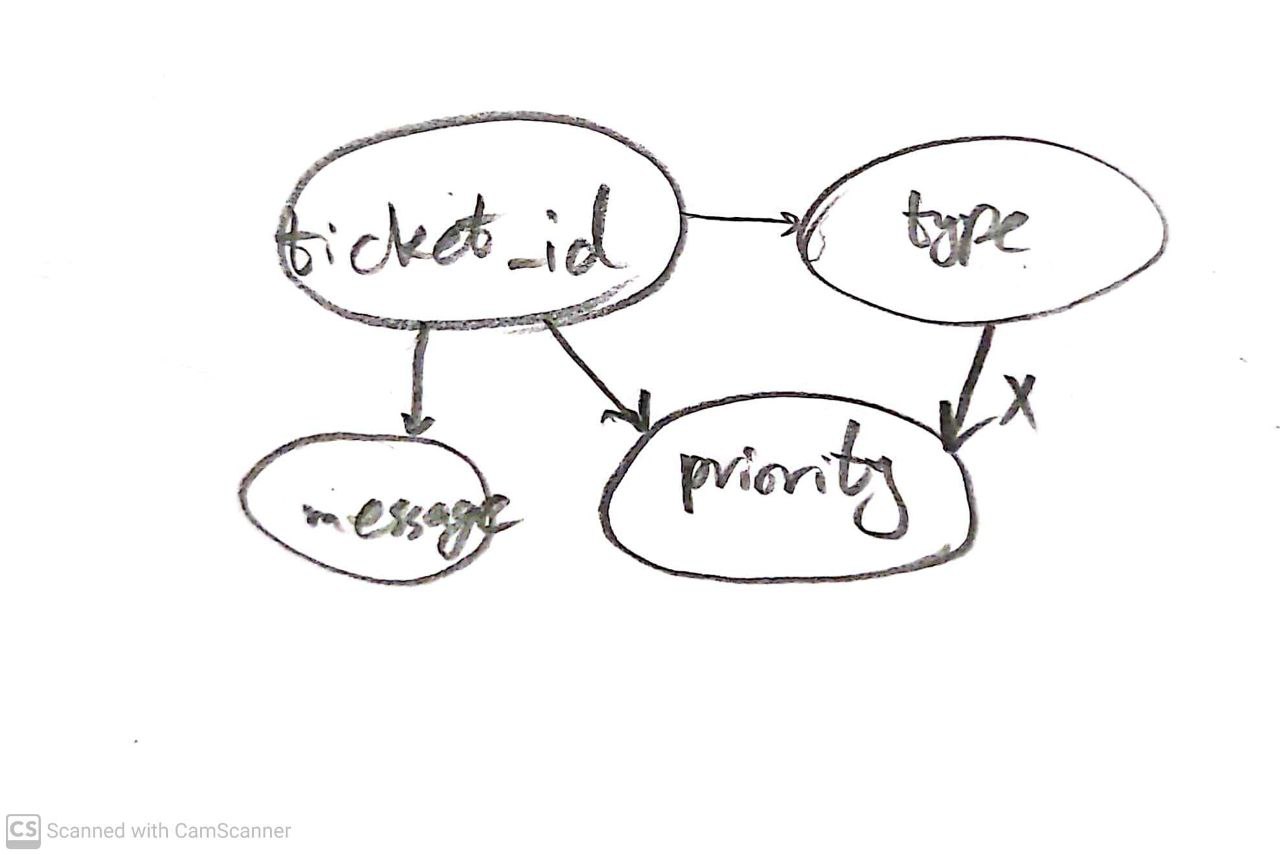 ticket_id
type
X
message
priority
CS Scanned with CamScanner